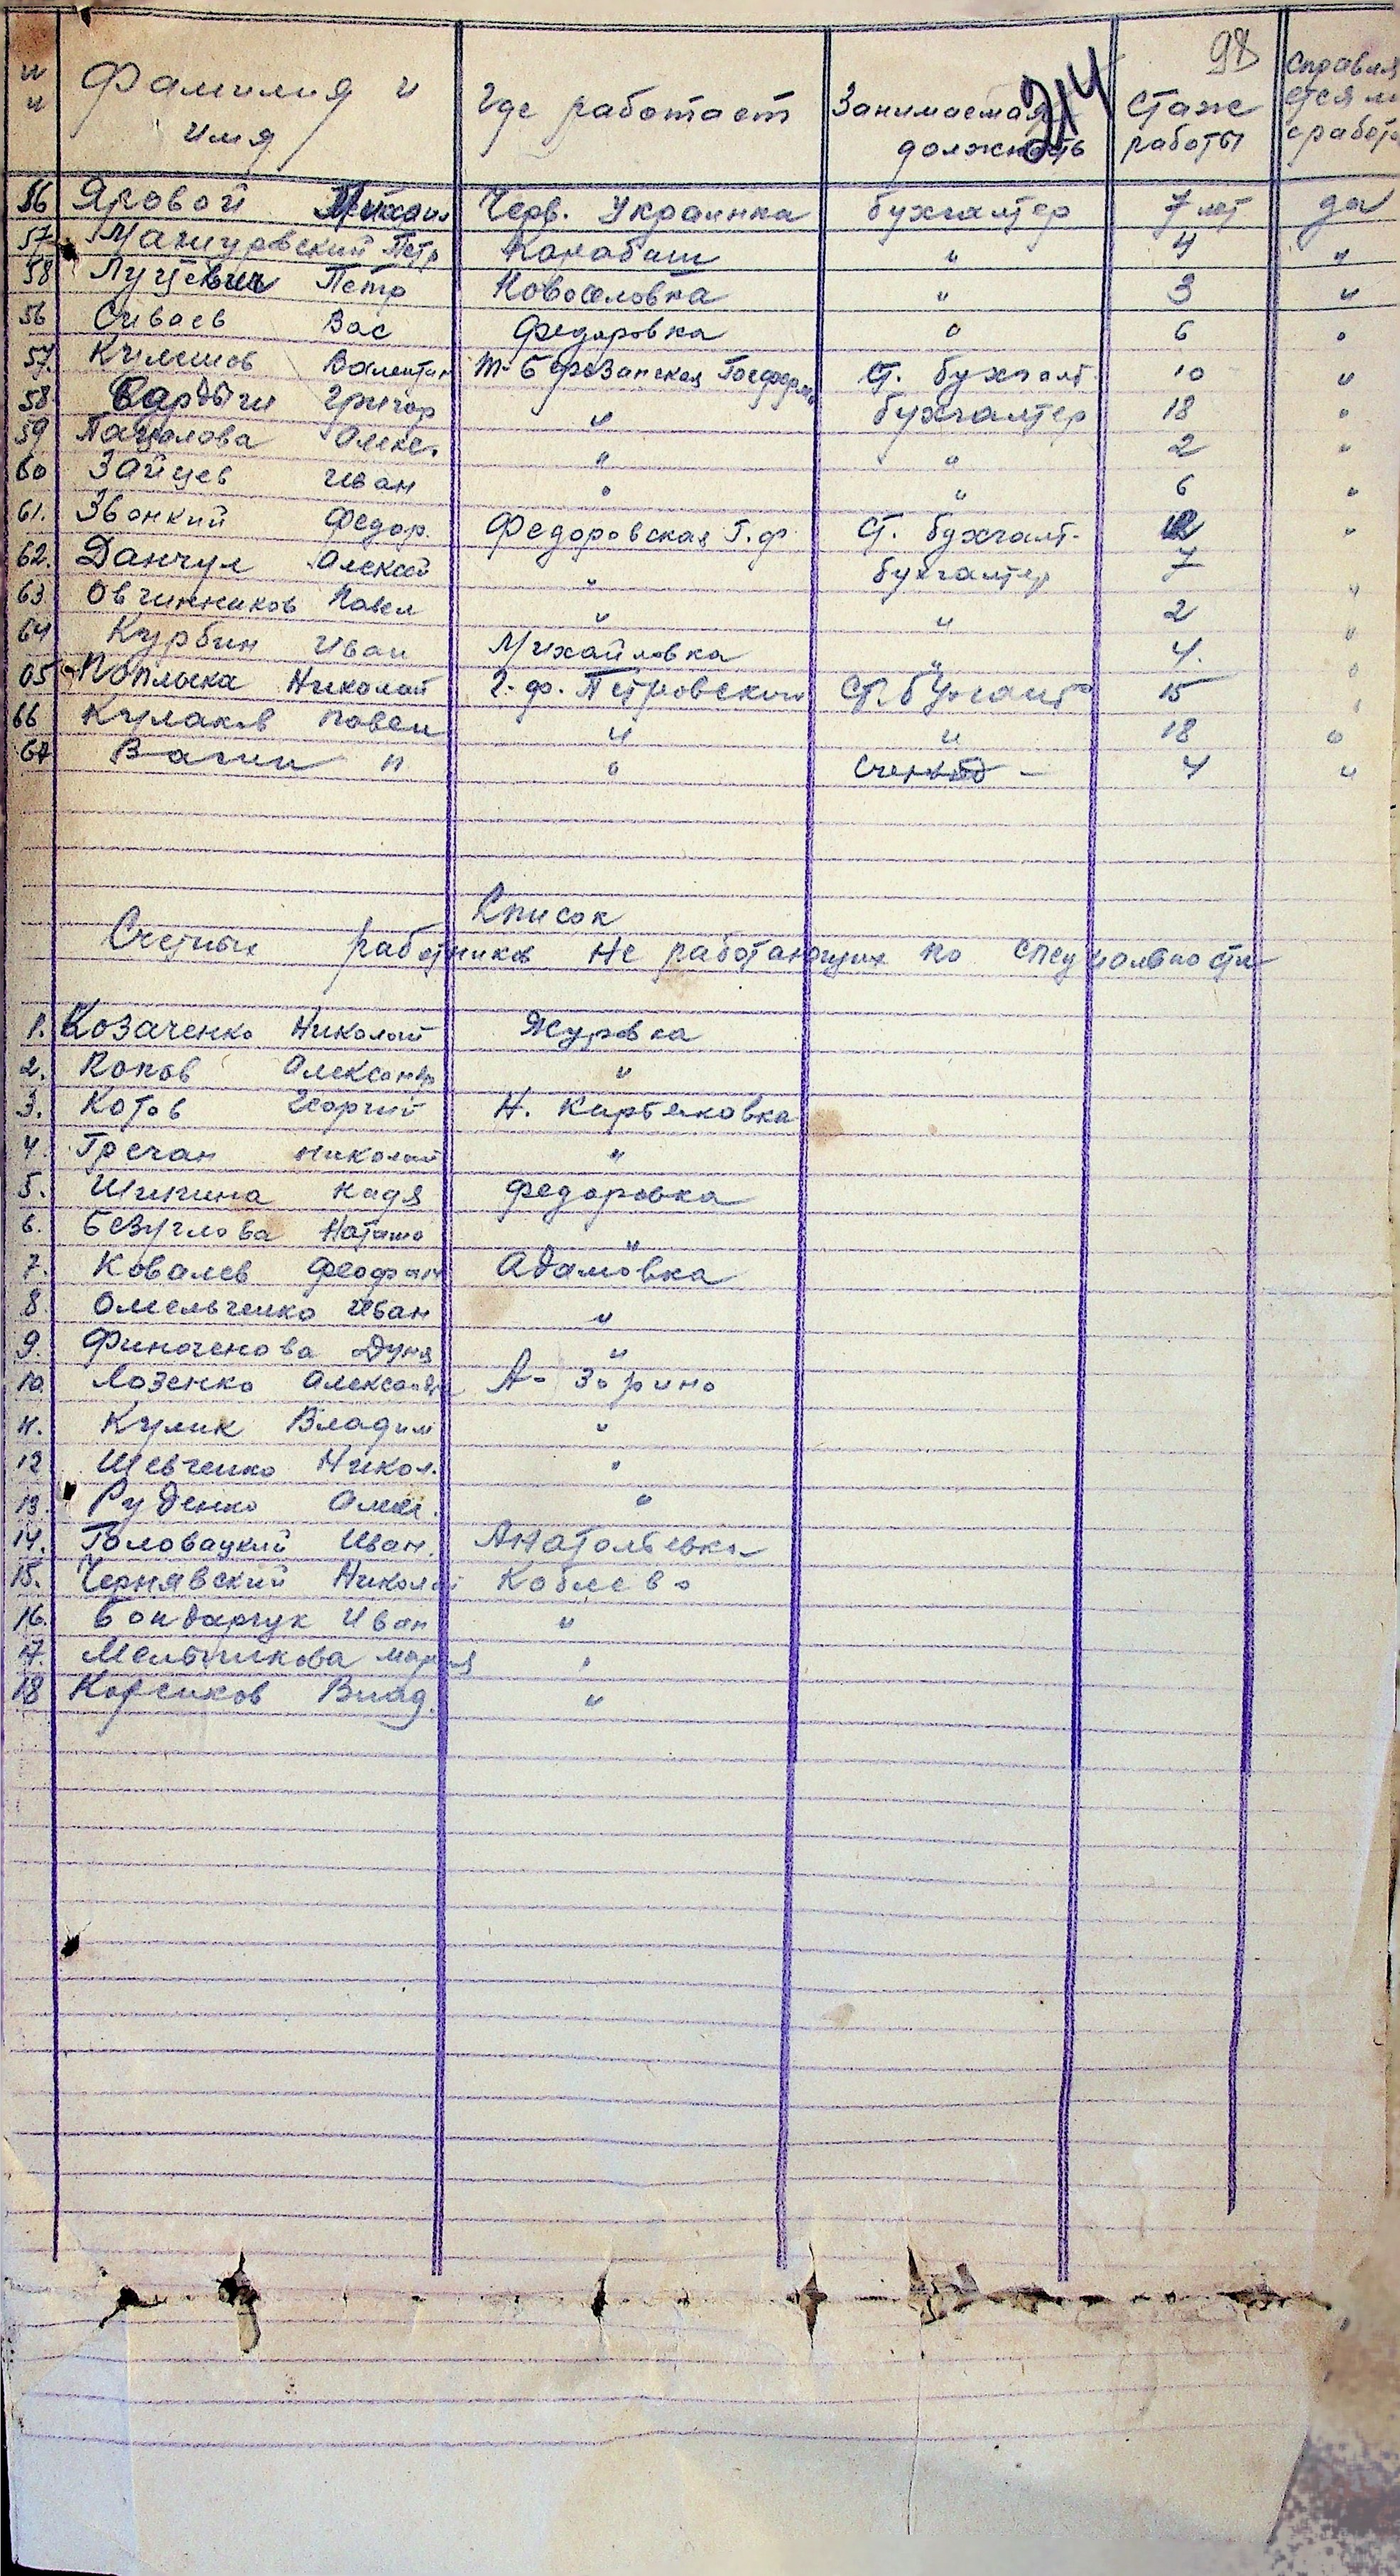 98
214
и и Фамилия и имя Где работает Занимаемая должность Стаж работы Справля ется ли с работо
56 Яровой Михаил Черв. Украинка бухгалтер 7 лет да
57 Мачуровский Петр Карабаш " 4 "
58 Луцевич Петр Новоселовка " 3 "
56 Сиваев Вас Федоровка " 6 "
57. Климов Валентин Т-Березанская Госферм. Ст. бухгалт. 10 "
58 Григор " бухгалтер 18 "
59 Алекс. " " 2 "
60 Зайцев Иван " " 6 "
61. Звонкий Федор. Федоровская Г.ф. Ст. бухгалт. 12 "
62. Данчул Алексей " бухгалтер 7 "
63 Овчинников Павел " " 2 "
64 Курбин Иван Михайловка " 4. "
65 Поплыка Николай Г.ф. Петровский Ст. бухгалт 15 "
66 Кулаков Павел " " 18 "
67 Вагин п " Счетовод - 4 "
Список
Счетных работников не работающих по специальности
1. Козаченко Николай Журовка
2. Попов Александр "
3. Котов Георгий Н. Карбековка
4. Гречан Николай "
5. Шипина Надя Федоровка
6. Безуглова Наташа "
7. Ковалев Феофан Адамовка
8. Омельченко Иван "
9. Финогенова Дуня "
10. Лозенко Александр А-Зорино
11. Кулик Владим "
12 Шевченко Никол. "
13. Руденко Алек. "
14. Головацкий Иван. Анатольевка
15. Чернявский Николай Коблево
16. Бондарчук Иван "
17. Мельникова Мария "
18 Корсиков Влад. "